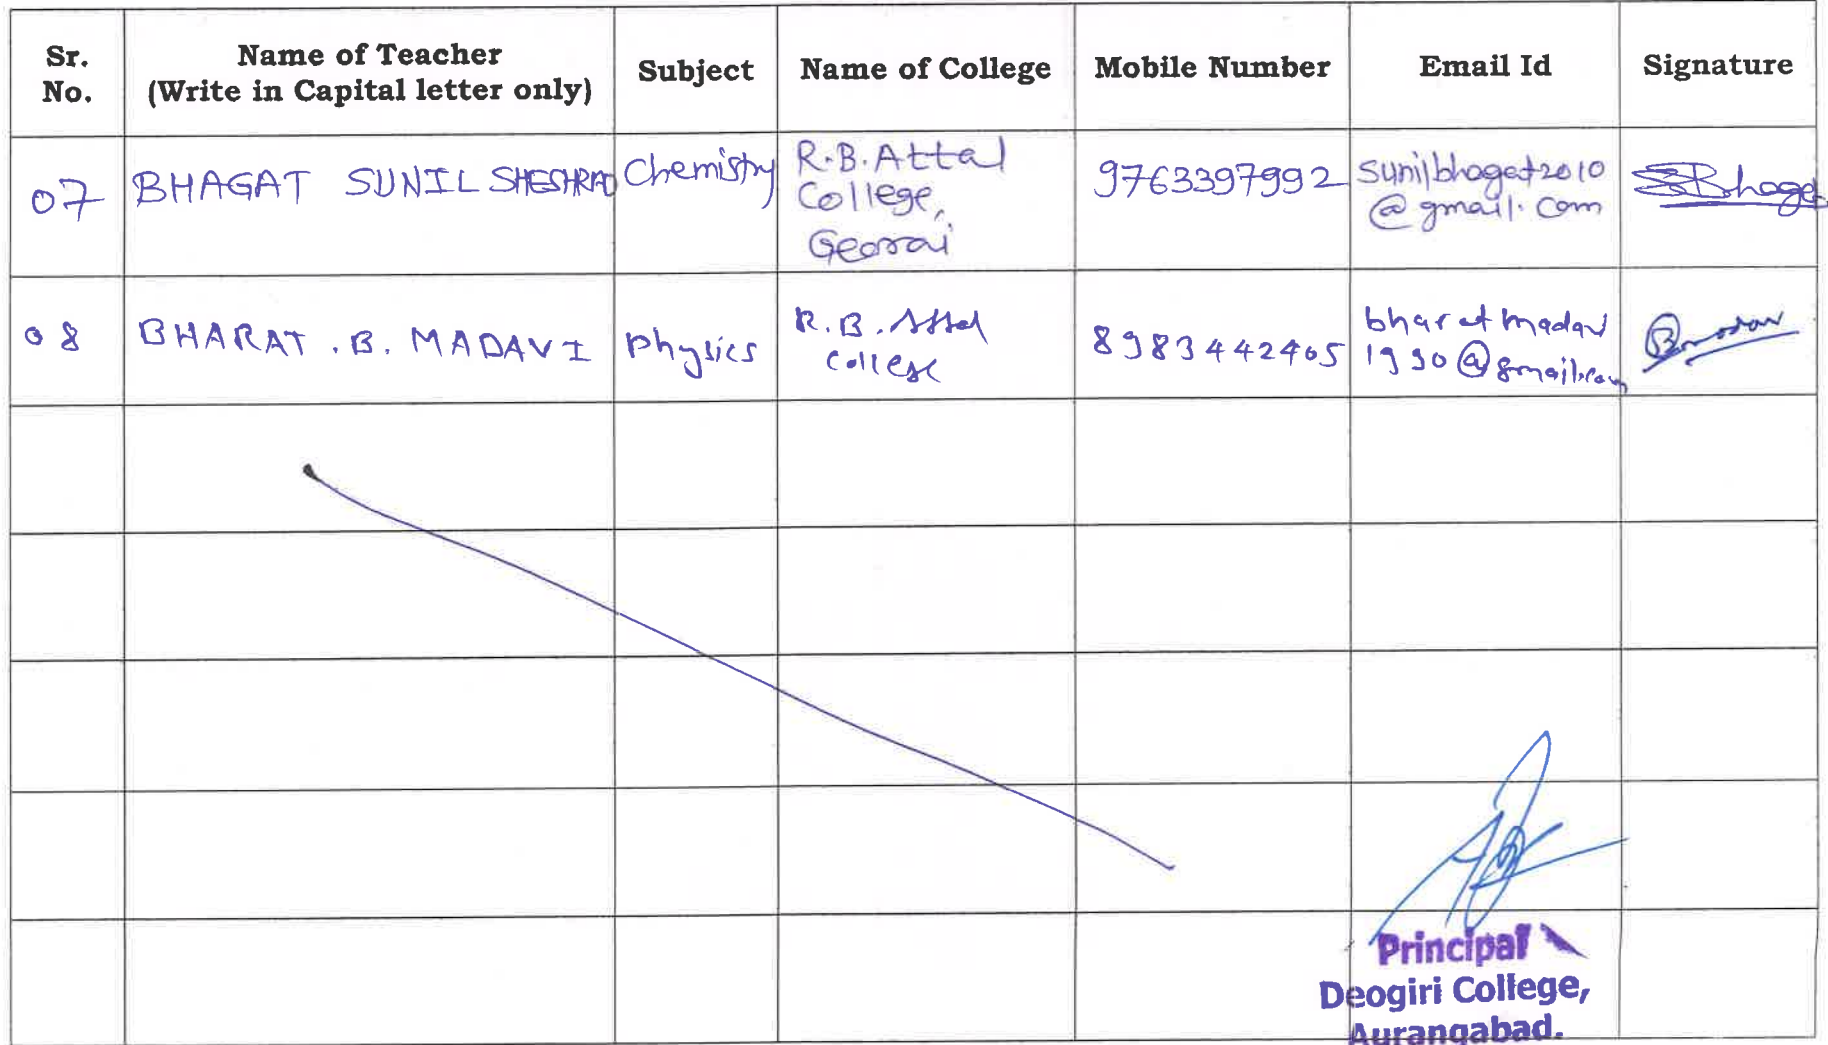 Sr. No.
Name of Teacher
(Write in Capital letter only)
Subject
Name of College
Mobile Number
Email Id
Signature
07
BHAGAT SUNIL SHESHRAO
Chemistry
R.B.Attal
College,
Georai
9763397992
sunilbhagat2010
@gmail.com
SBhagat
08
BHARAT .B. MADAVI
Physics
R.B. Attal
College
8983442405
bharatmadav
1990@gmail.com
Principal
Deogiri College,
Aurangabad.